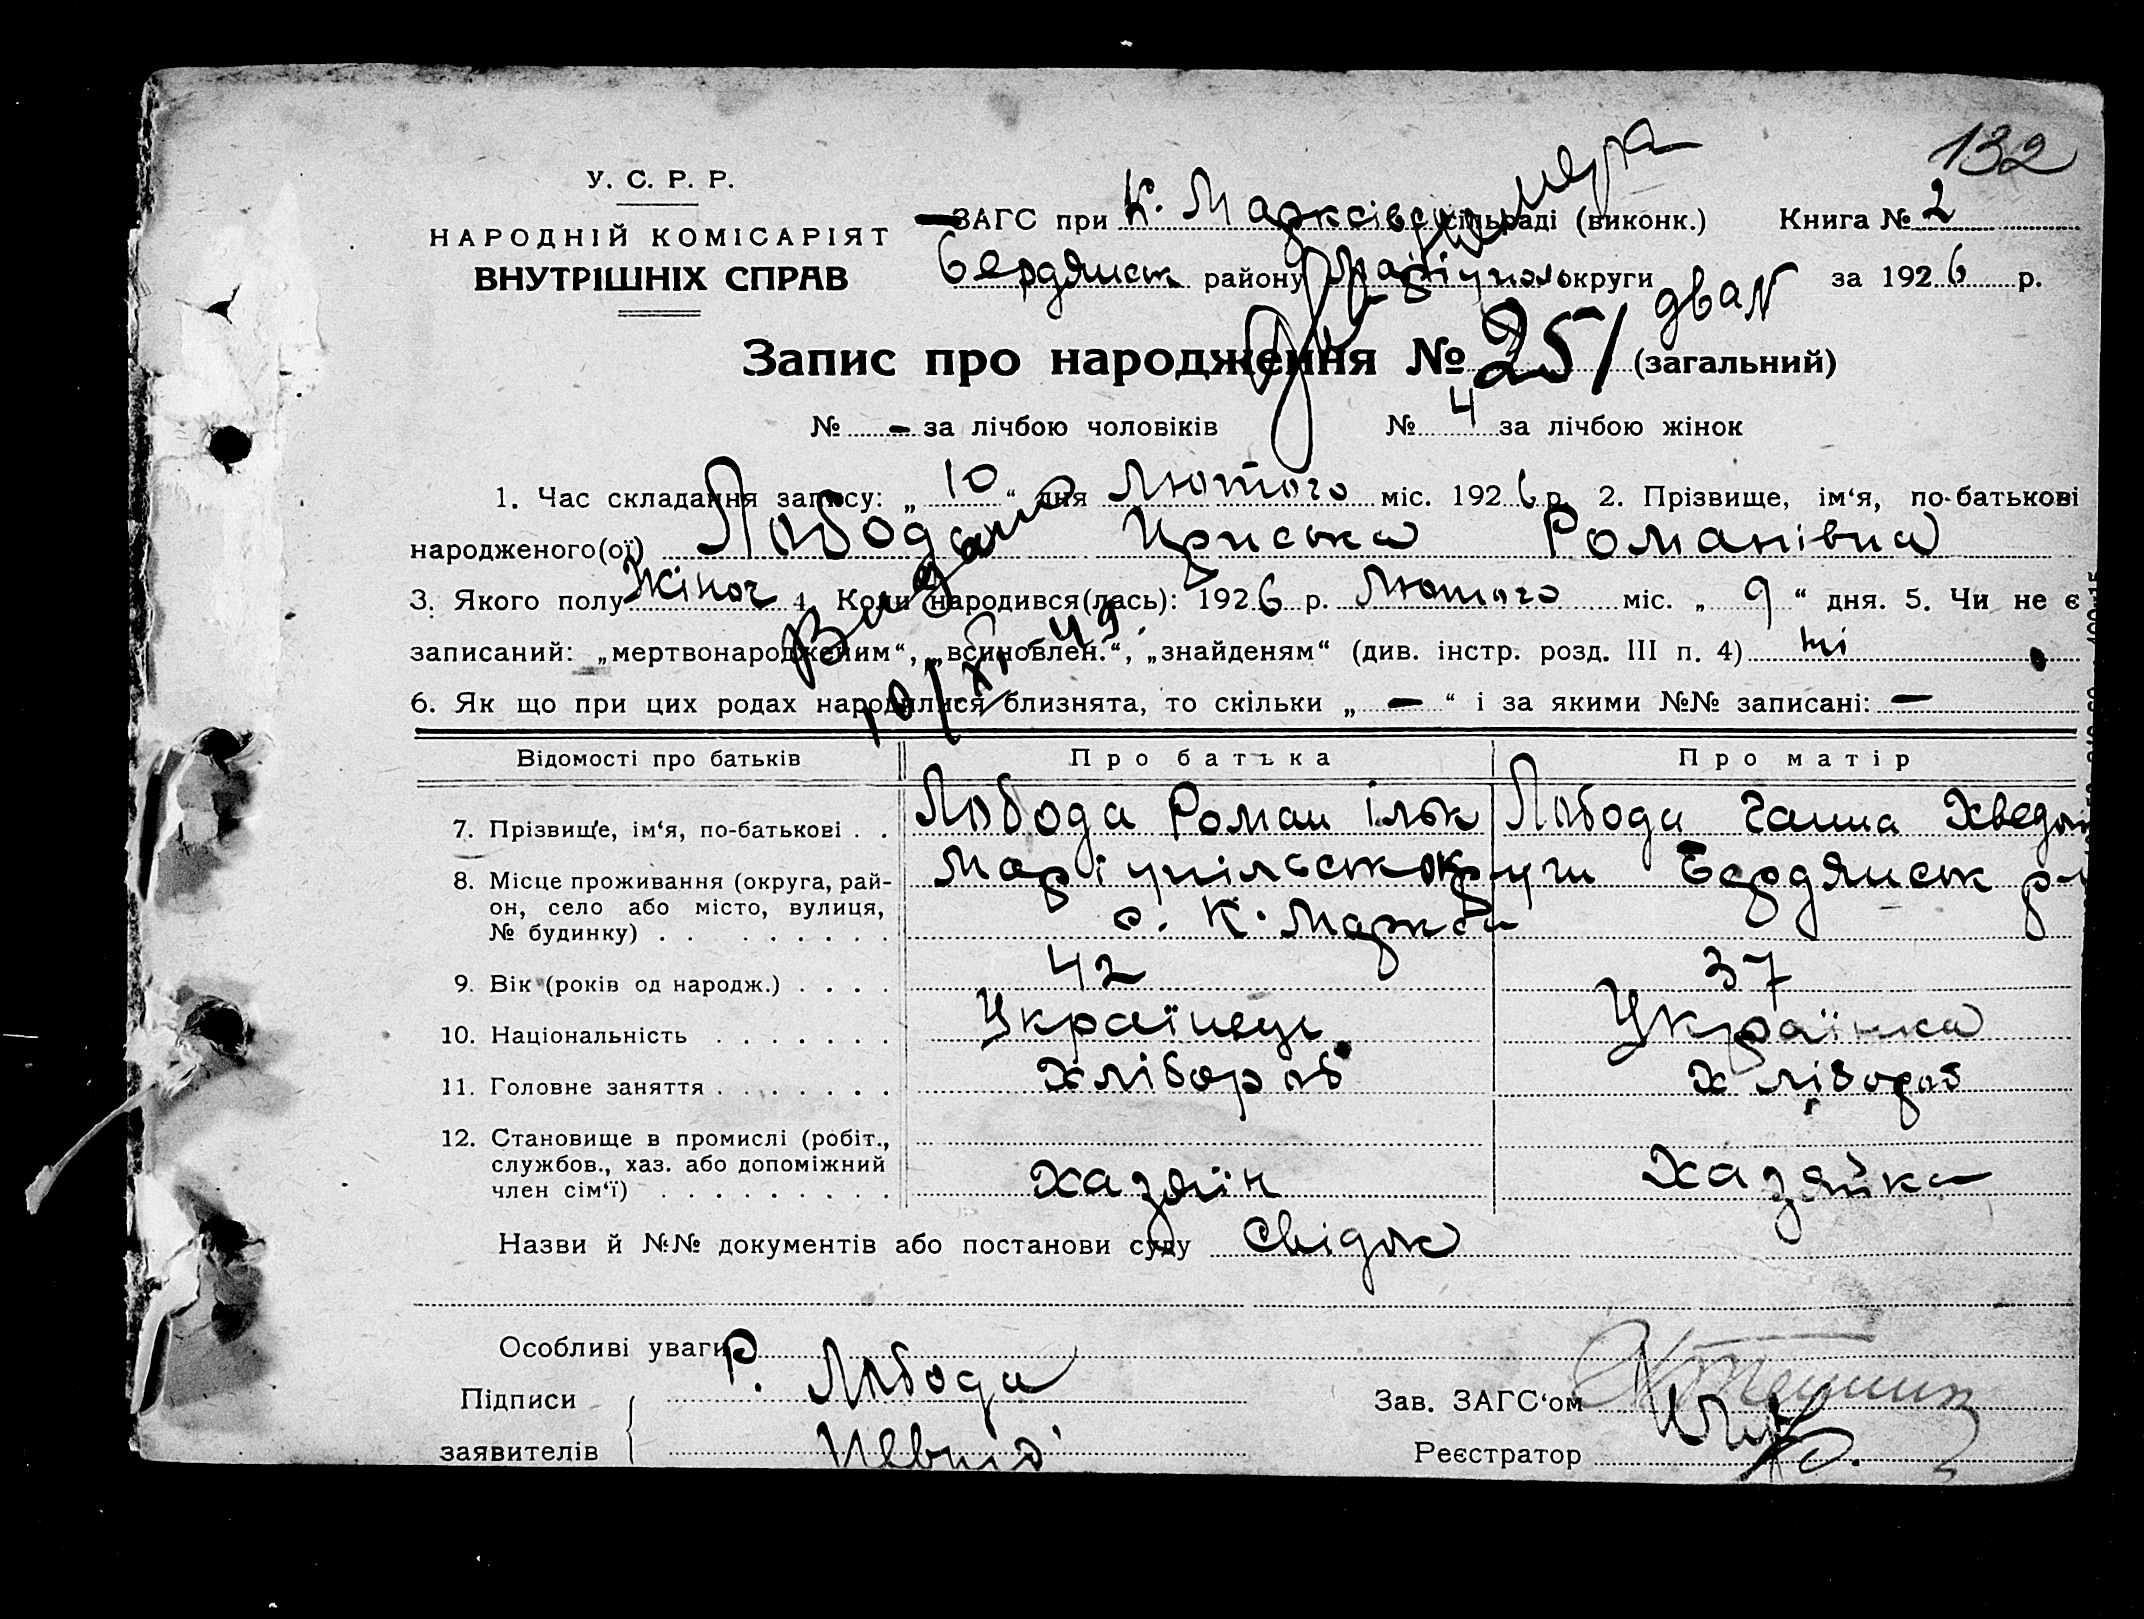 132
У. С. Р. Р.
НАРОДНІЙ КОМІСАРІЯТ
ВНУТРІШНІХ СПРАВ
ЗАГС при К. Марксівс сільраді (виконк.) Книга № 2
Бердянськ району Маріупол округи за 1926 р.
два
Запис про народження № 251 (загальний)
№ - за лічбою чоловіків № 4 за лічбою жінок
1. Час складання запису: „ 10 “ дня Лютого міс. 1926 р. 2. Прізвище, ім‘я, по-батькові
народженого(ої) Лобода Ириська Романівна
3. Якого полу Жіноч 4. Коли народився(лась): 1926 р. Лютого міс. „ 9 “ дня. 5. Чи не є
записаний: „мертвонародженим“, „всиновлен.“, „знайденям“ (див. інстр. розд. III п. 4) ні
6. Як що при цих родах народилися близнята, то скільки „ — “ і за якими №№ записані: —
Відомості про батьків Про батька Про матір
7. Прізвище, ім‘я, по-батькові . . Лобода Роман Ільк Лобода Ганна Хведор
8. Місце проживання (округа, рай-
он, село або місто, вулиця,
№ будинку) Маріупільськ округи Бердянськ р-
с. К. Маркси
9. Вік (років од народж.) . . . . 42 37
10. Національність Українець Українка
11. Головне заняття Хлібороб Хлібороб
12. Становище в промислі (робіт.,
службов., хаз. або допоміжний
член сім‘ї) хазяїн хазяйка
Назви й №№ документів або постанови суду Свідок
Особливі уваги
Підписи Р. Лобода Зав. ЗАГС‘ом
заявителів Реєстратор